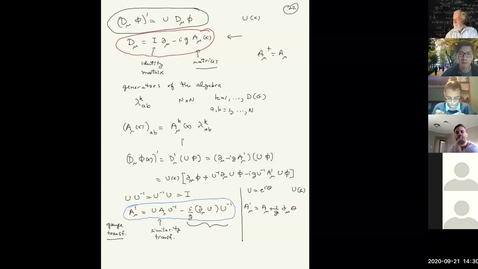 (D_μ ϕ)' = U D_μ ϕ
U(x)
26
D_μ = I ∂_μ - i g A_μ(x)
A_μ^† = A_μ
identity matrix
matrices
generators of the algebra
λ^k_{ab} N×N k=1, ..., D(G)
a,b = 1, ..., N
(A_μ(x))_{ab} = A_μ^k(x) λ^k_{ab}
(D_μ ϕ(x))' = D_μ'(U ϕ) = (∂_μ - i g A_μ')(U ϕ)
= U(x) [∂_μ ϕ + U^{-1} ∂_μ U ϕ - i g U^{-1} A_μ' U ϕ]
U U^{-1} = U^{-1} U = I
U = e^{iθ} U(1)
A_μ' = U A_μ U^{-1} - i/g (∂_μ U) U^{-1}
A_μ' = A_μ + 1/g ∂_μ θ
gauge transf.
similarity transf.
2020-09-21 14:30